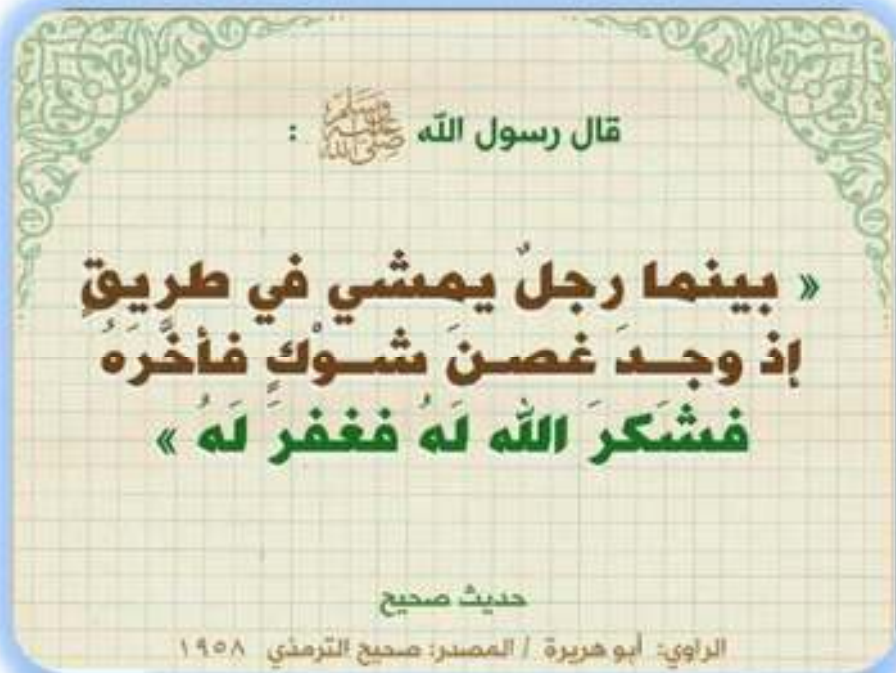 قال رسول الله ﷺ :
« بينما رجلٌ يمشي في طريقٍ
إذ وجدَ غصنَ شوْكٍ فأخَّرَهُ
فشَكرَ الله لَهُ فغفرَ لَهُ »
حديث صحيح
الراوي: أبو هريرة / المصدر: صحيح الترمذي ١٩٥٨